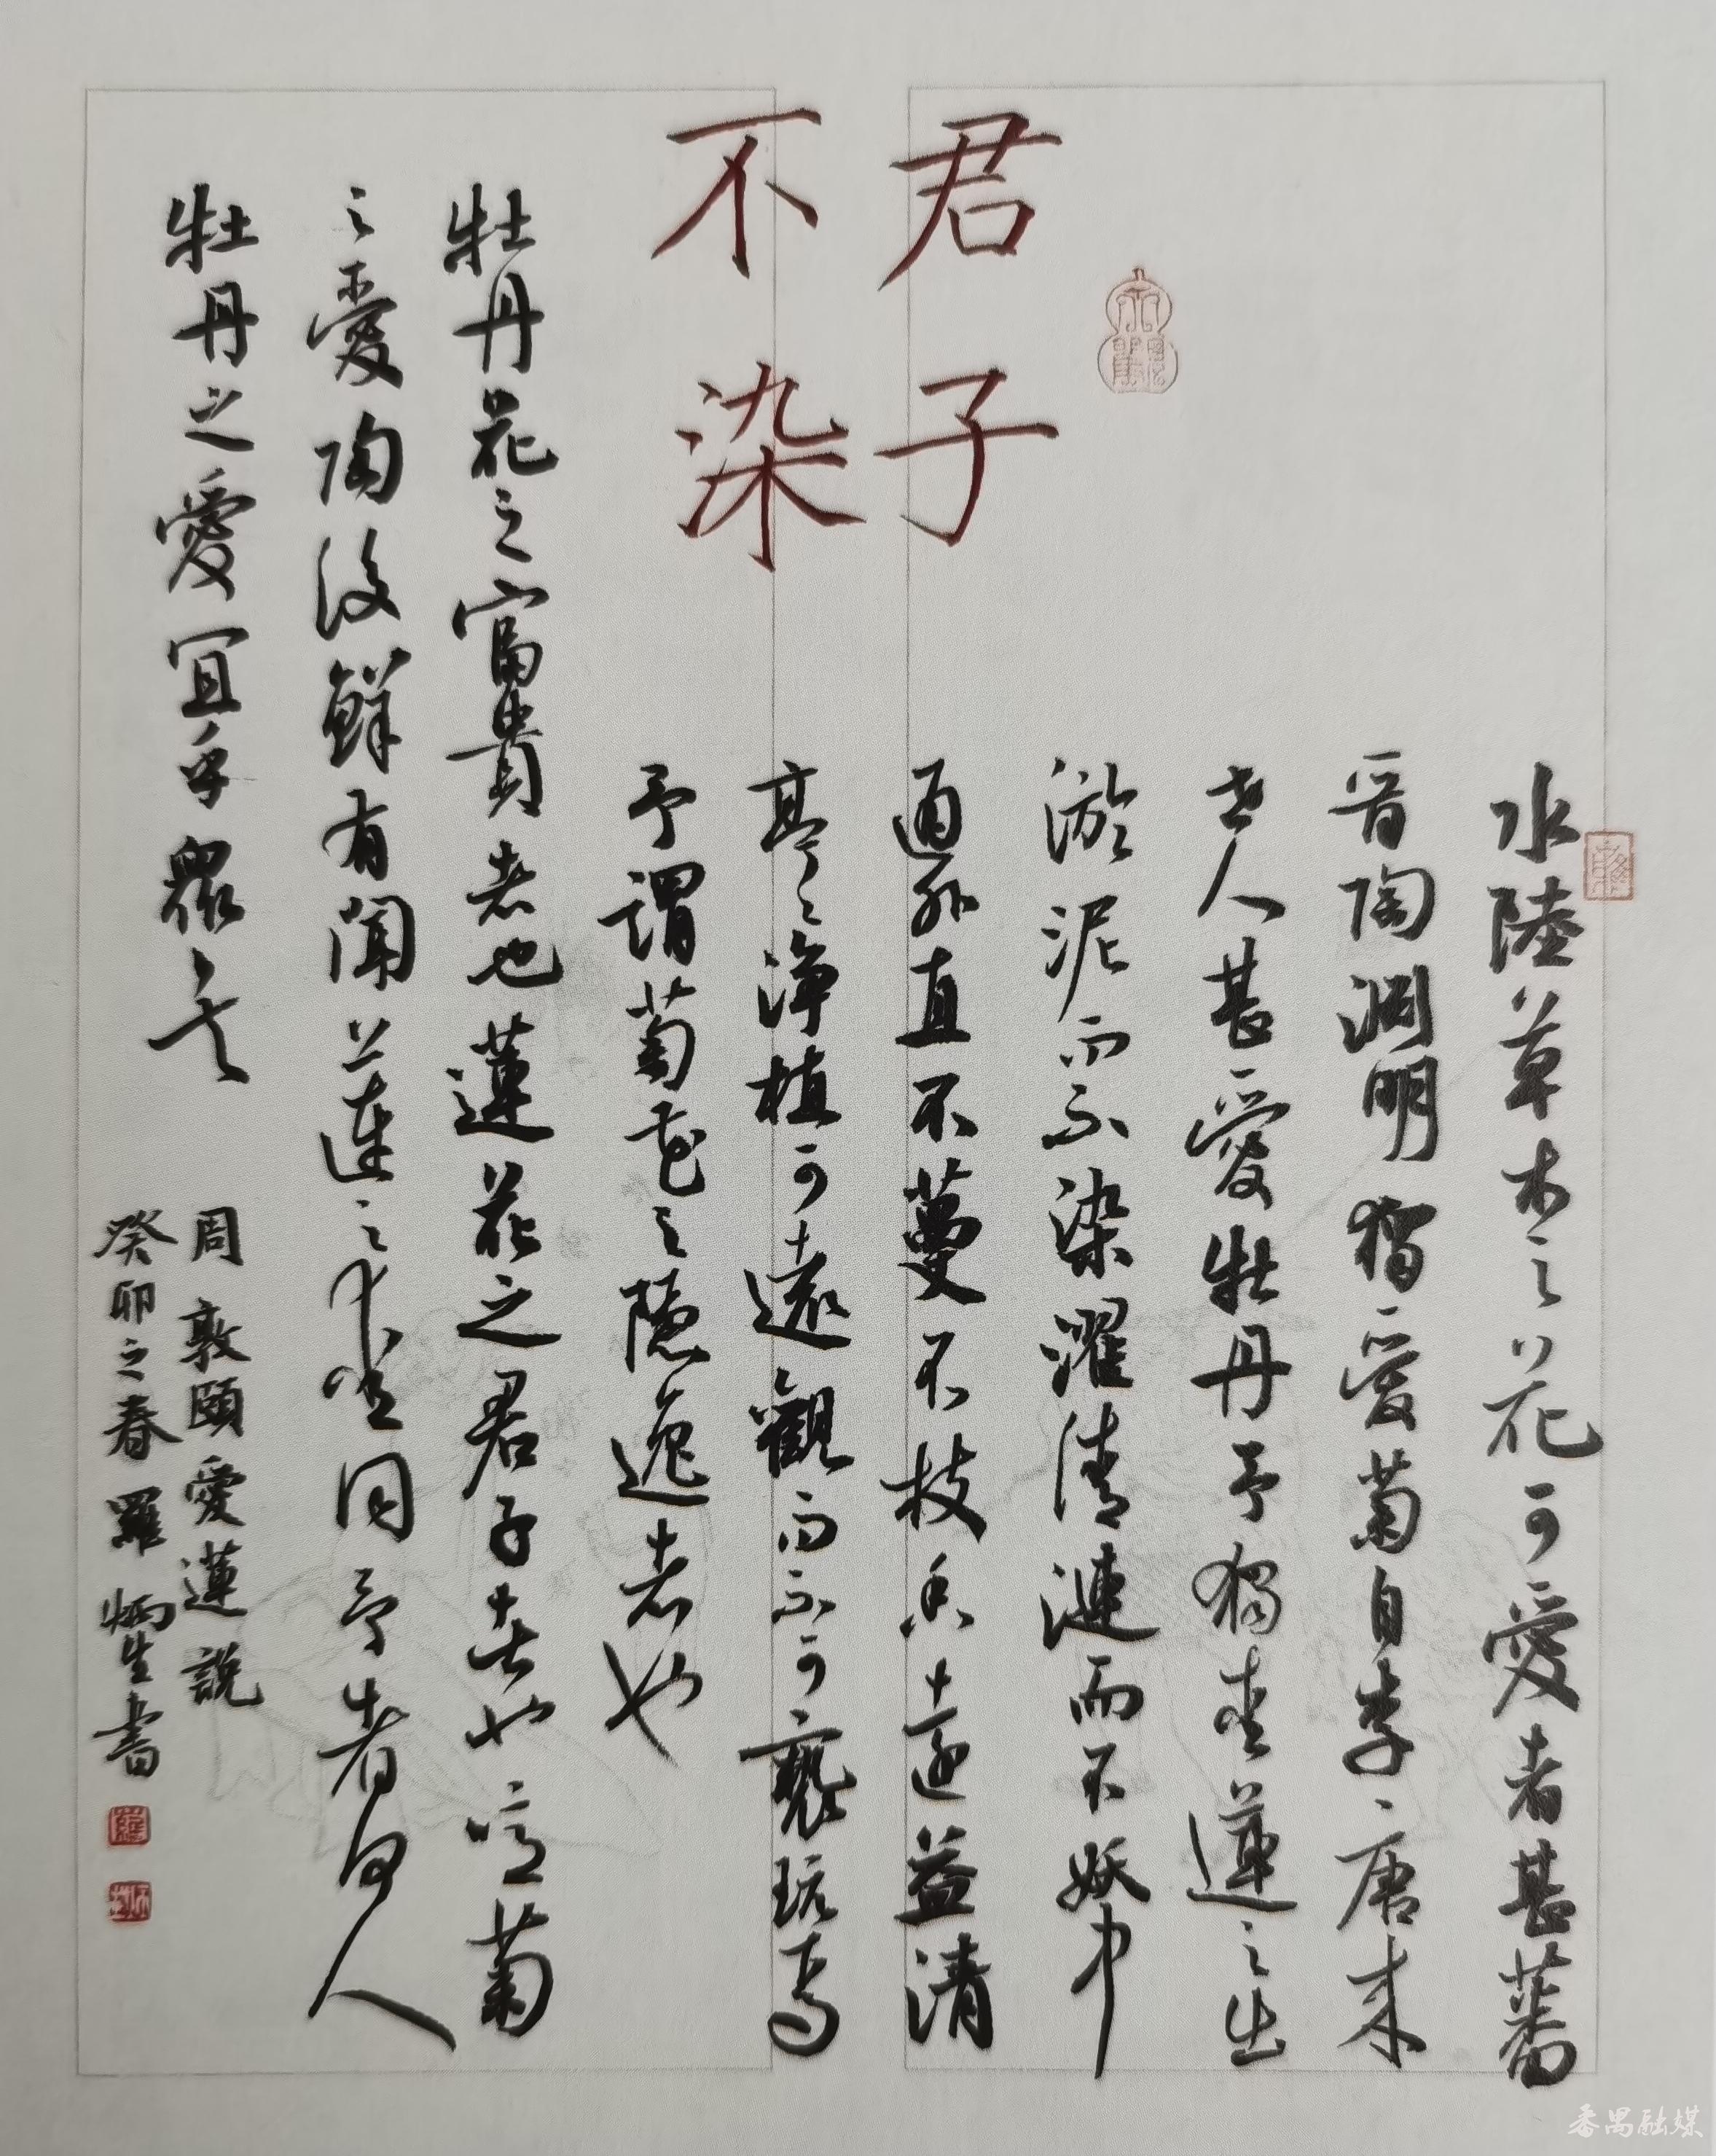 君子
不染
水陸草木之花可愛者甚蕃
晋陶渊明獨愛菊自李唐来
世人甚愛牡丹予獨爱蓮之出
淤泥而不染濯清漣而不妖中
通外直不蔓不枝香遠益清
亭亭淨植可遠觀而不可褻玩焉
予謂菊花之隱逸者也
牡丹花之富貴者也蓮花之君子者也噫菊
之愛陶後鮮有聞蓮之爱同予者何人
牡丹之愛宜乎衆矣
周敦頤愛蓮說
癸卯之春羅炳生書
羅
番禺融媒